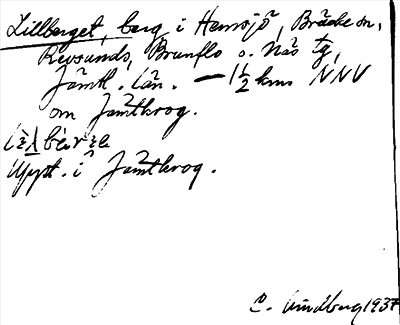 Lillberget, berg i Hemsjö, Bräcke sn,
Revsunds, Brunflo o. Näs tg,
Jämtl. län. — 1½ km NNV
om Jämtkrog.
Uppt. i Jämtkrog.
C. Lindberg 1937